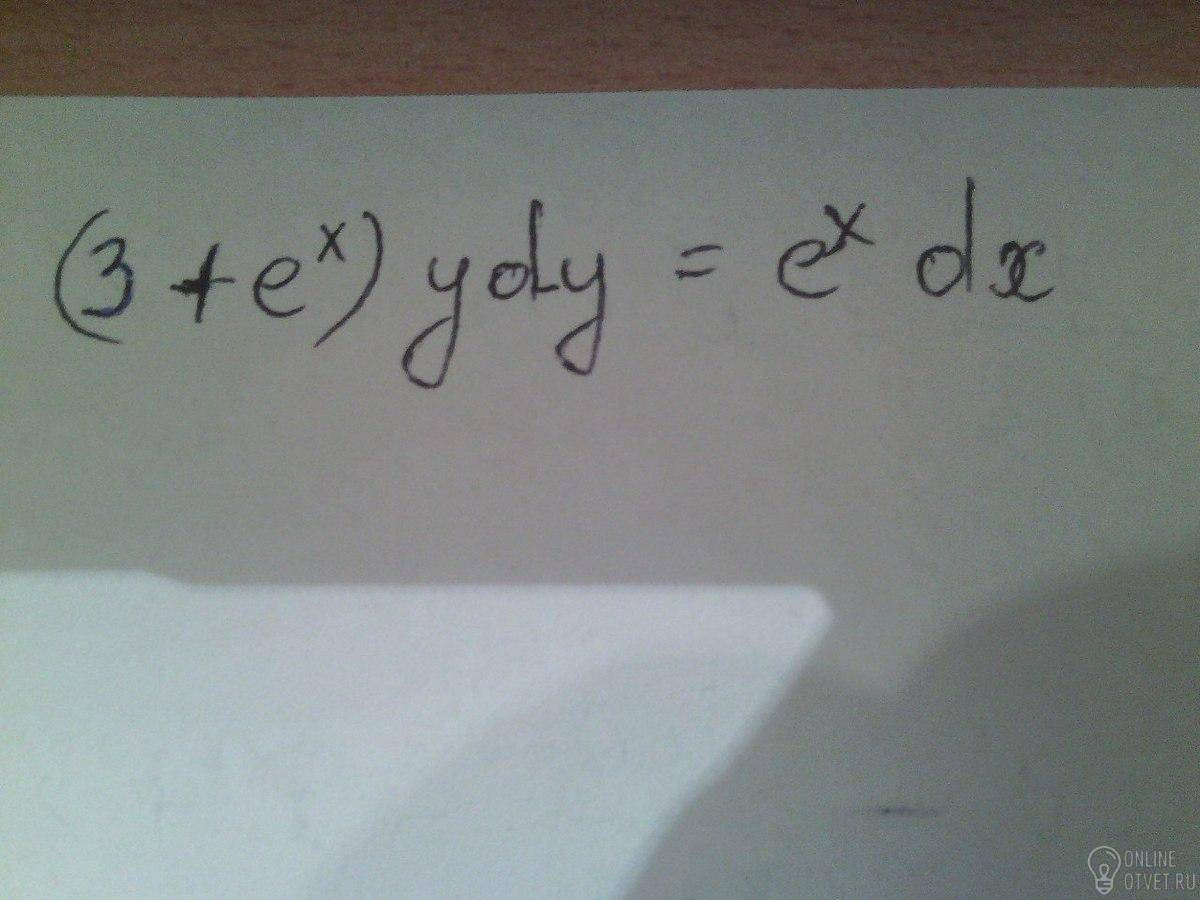 (3 + eˣ) ydy = eˣ dx
ONLINE
OTVET.RU